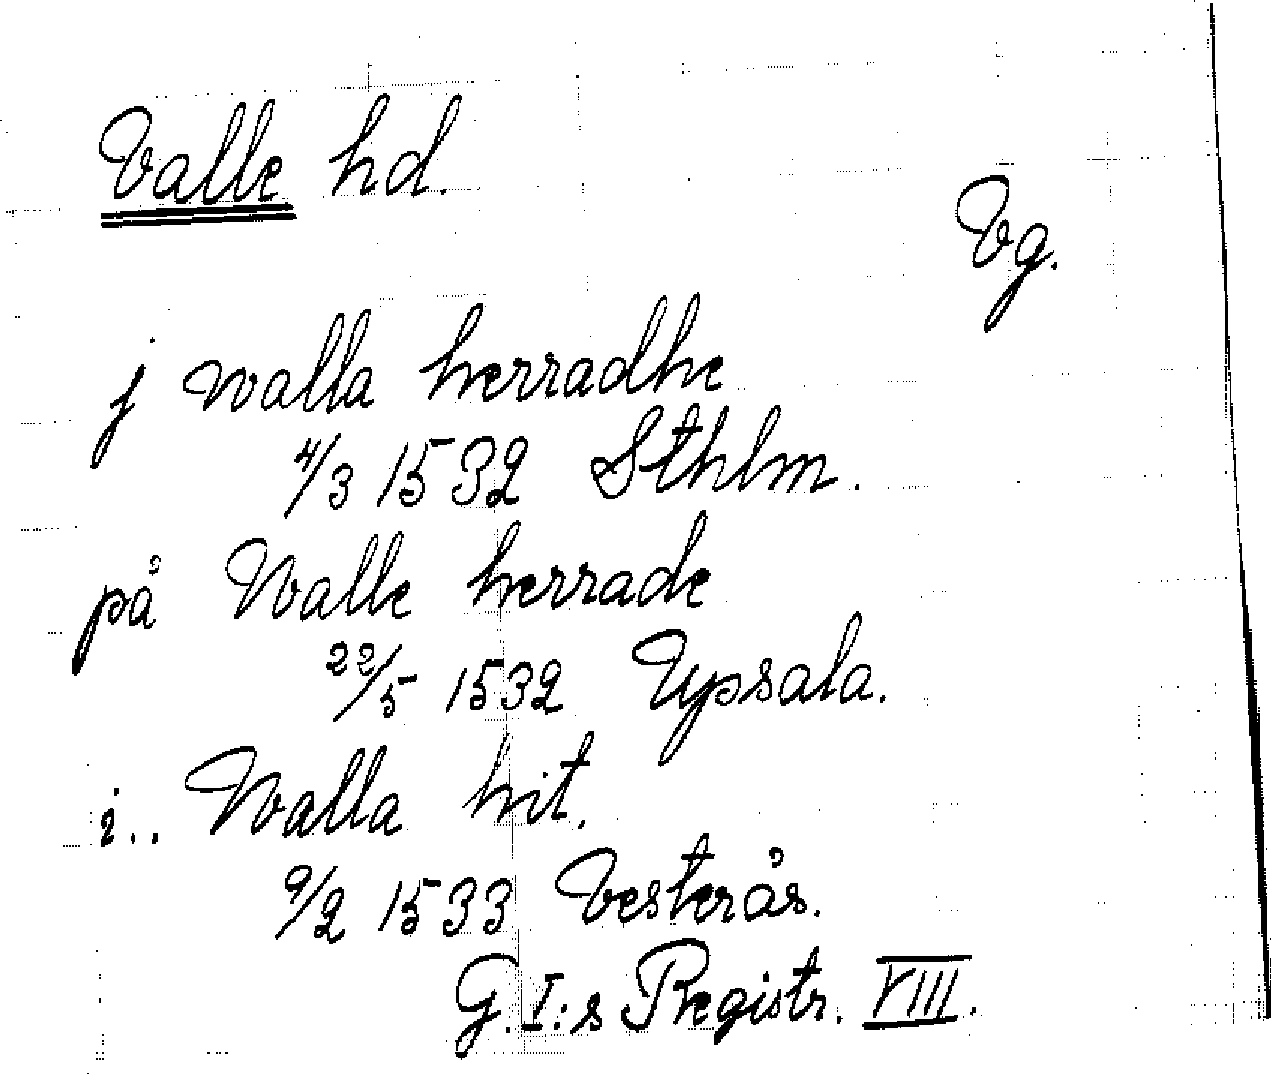 Valle hd.
Vg.
j walla herradhe
4/3 1532 Sthlm.
på Walle herrade
22/5 1532 Upsala.
i.. Walla hit.
9/2 1533 Vesterås.
G. I:s Registr. VIII.